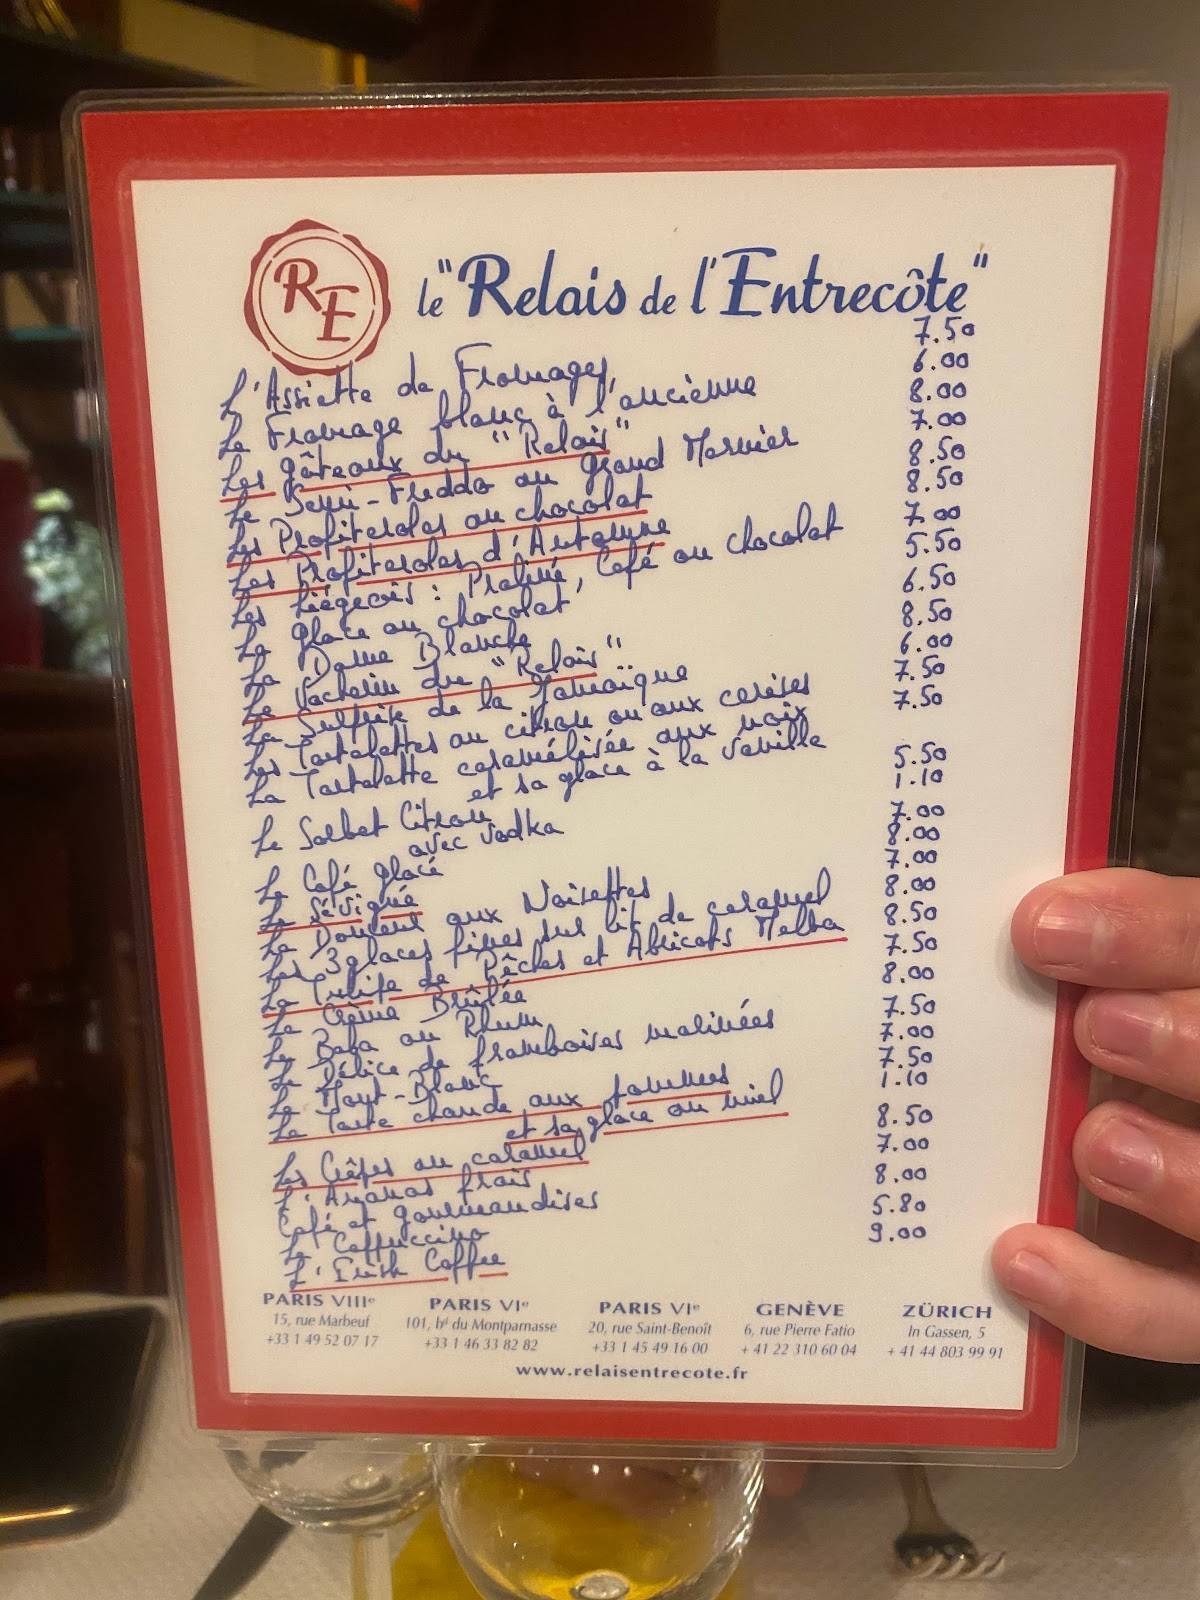 RE
le "Relais de l'Entrecôte"
L'Assiette de Fromages 7.50
Le Fromage blanc à l'ancienne 6.00
Les gâteaux du "Relais" 8.00
Le Semi-Freddo au Grand Marnier 7.00
Les Profiteroles au chocolat 8.50
Les Profiteroles d'Automne 8.50
Les Liégeois : Praliné, Café ou chocolat 7.00
La glace au chocolat 5.50
La Dame Blanche 6.50
Le Vacherin du "Relais" 8.50
La Surprise de la Jamaïque 6.00
Les Tartelettes au citron ou aux cerises 7.50
La Tartelette caramélisée aux noix 7.50
et sa glace à la vanille
Le Sorbet Citron 5.50
avec vodka 1.10
Le Café glacé 7.00
Le Sévigné 8.00
La Douceur aux Noisettes 7.00
Les 3 glaces fines sur lit de caramel 8.00
La Tulipe de Pêches et Abricots Melba 8.50
La Crème Brûlée 7.50
Le Baba au Rhum 8.00
Le Délice de framboises marinées 7.50
Le Mont-Blanc 7.00
La Tarte chaude aux pommes 7.50
et sa glace au miel 1.10
Les Crêpes au caramel 8.50
L'Ananas frais 7.00
Café et gourmandises 8.00
Le Cappuccino 5.80
L'Irish Coffee 9.00
PARIS VIIIe PARIS VIe PARIS VIe GENÈVE ZÜRICH
15, rue Marbeuf 101, bd du Montparnasse 20, rue Saint-Benoît 6, rue Pierre Fatio In Gassen, 5
+33 1 49 52 07 17 +33 1 46 33 82 82 +33 1 45 49 16 00 + 41 22 310 60 04 + 41 44 803 99 91
www.relaisentrecote.fr